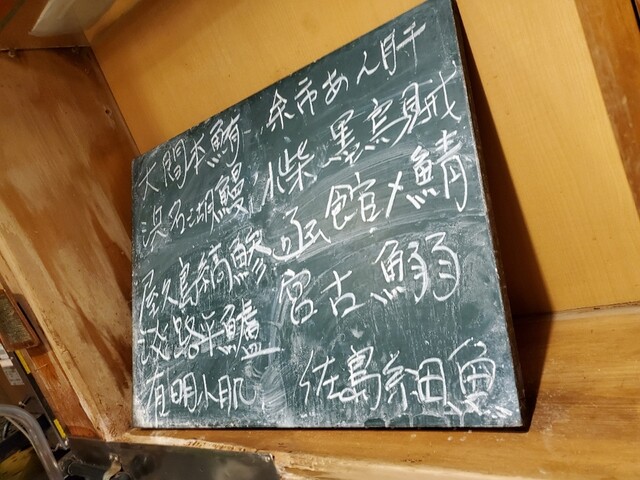 大間本鮪
浜名湖鰻
屋久島縞鯵
淡路平鱸
有明小肌
余市あん肝
小柴墨烏賊
函館〆鯖
宮古鰯
佐島細魚